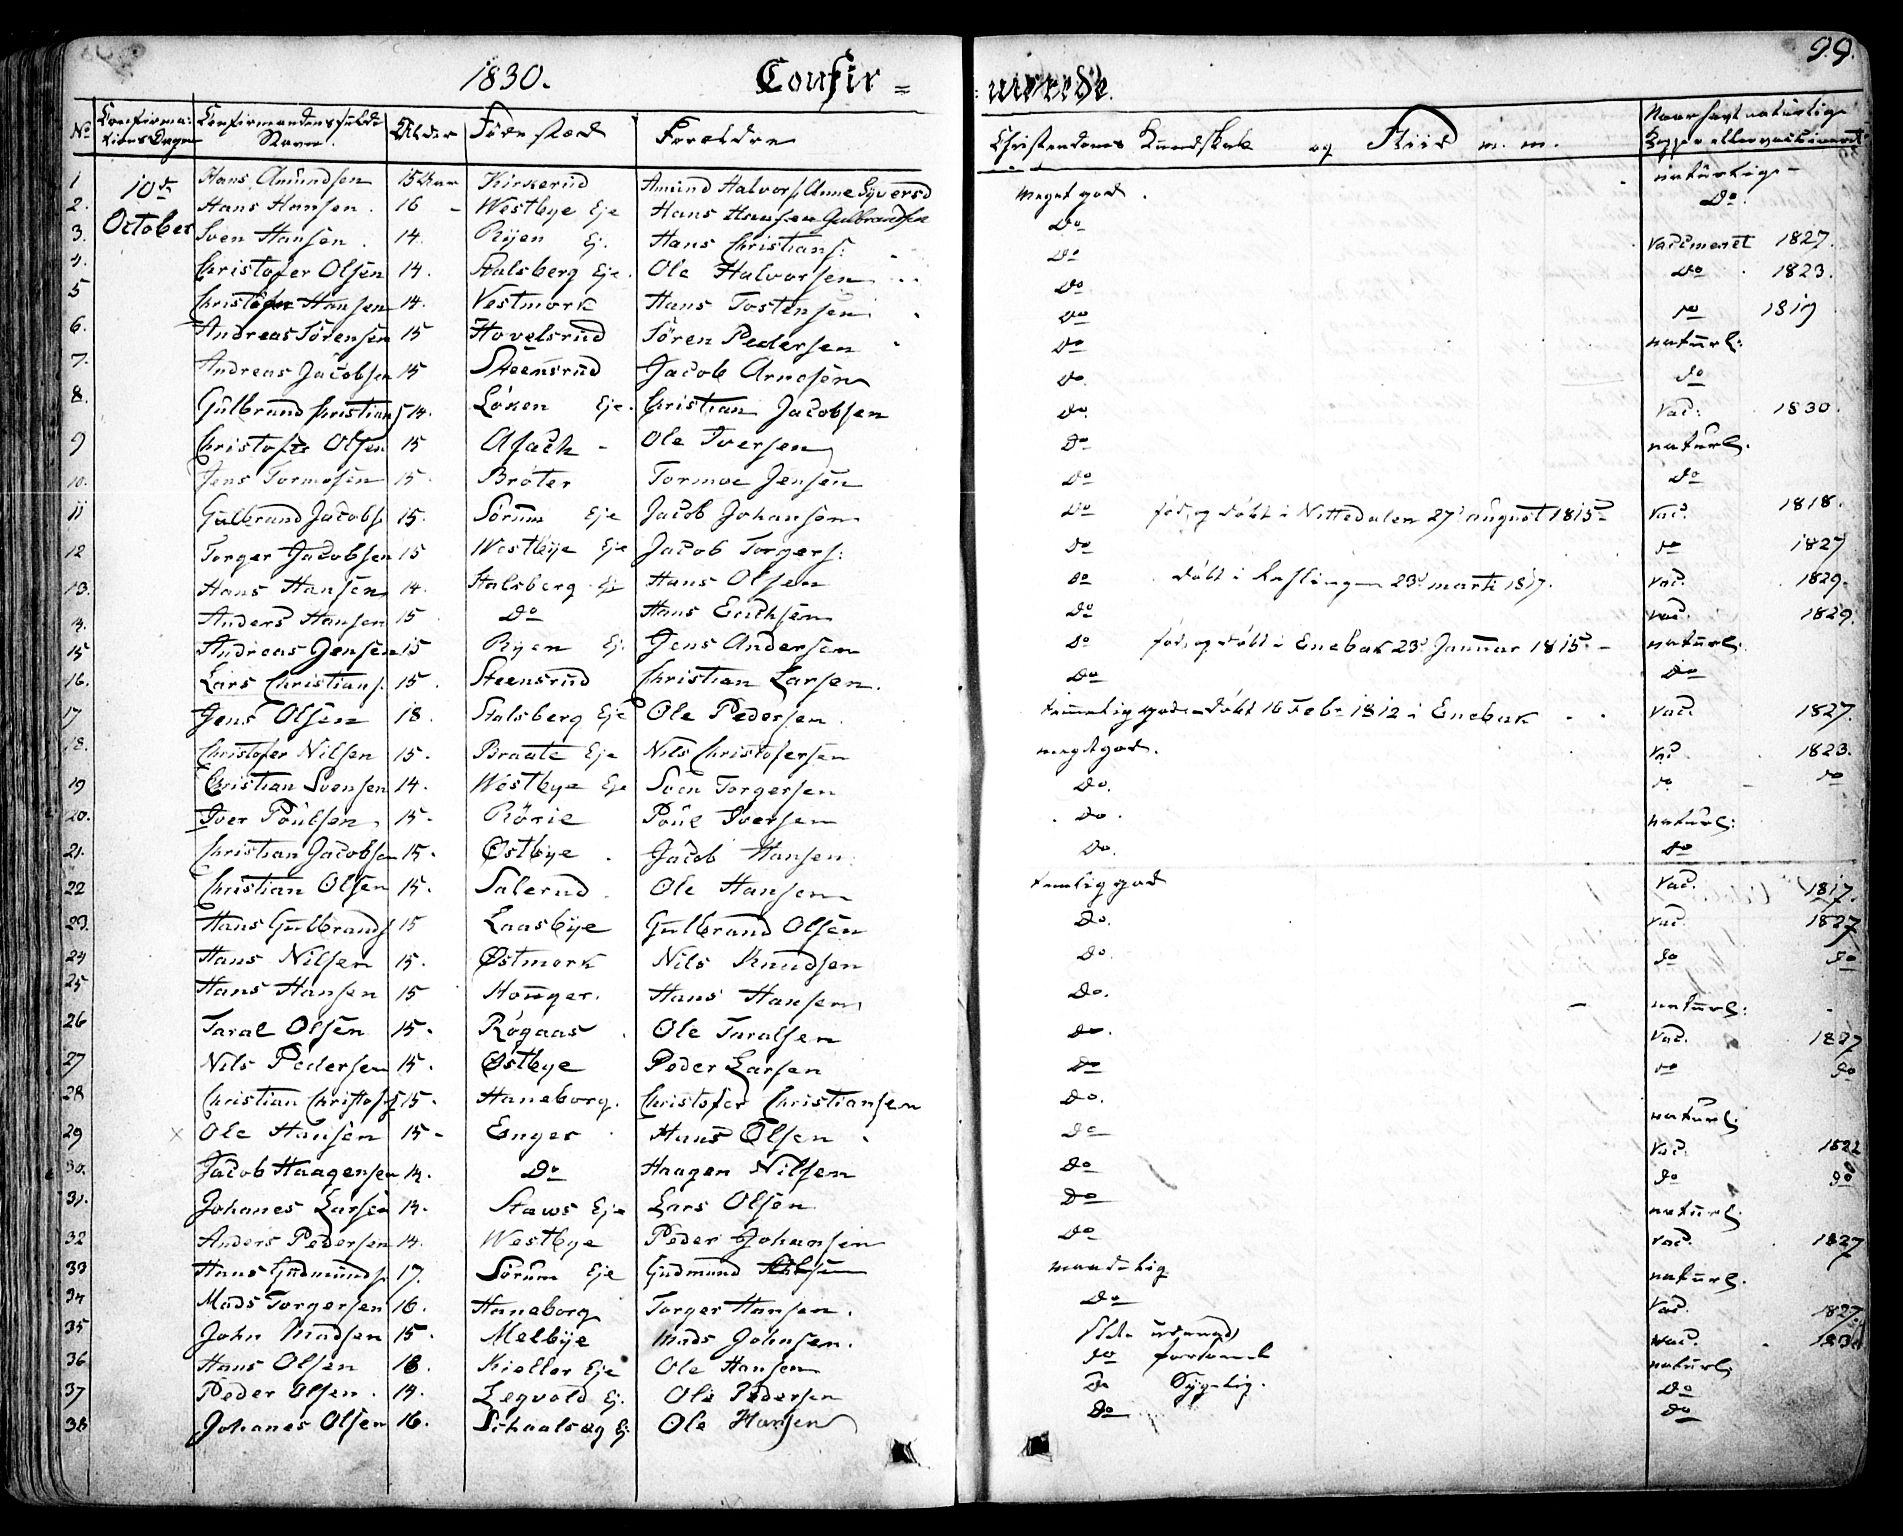 99.
1830. Confir = merede.
No Confirmations Dagen Confirmandens fulde Navn. Alder Fødestæd Forældre Christendoms Kundskab og Fliid m. m. Naar havt naturlige Kopper eller vaccineret
1 10de October Hans Amundsen 15 Aar Kirkerud Amund Halvors. Anne Syversd meget god. naturlige
2. Hans Hansen. 16 Westbye Eje Hans Hansen Gulbrandsen Do Do.
3. Sven Hansen. 14. Ryen Ej. Hans Christians: Do vaccineret 1827.
4. Christofer Olsen 14. Stalsberg Eje. Ole Halvorsen Do Do 1823.
5 Christofer Hansen 14. Vestmork Hans Tostensen Do Do 1819
6. Andreas Sörensen 15 Hovelsrud Sören Pedersen Do naturl:
7. Andreas Jacobsen 15 Steensrud Jacob Arnesen Do. do
8. Gulbrand Christians 14. Löken Eje. Christian Jacobsen Do. Vac: 1830.
9 Christofer Olsen 15 Asack Ole Iversen Do naturl.
10. Jens Tormosen 15. Bröter Tormoe Jensen Do Do
11 Gulbrand Jacobs 15. Sörum Eje Jacob Johansen Do föd og döbt i Nittedalen 27 august 1815 Vac. 1818.
12 Torger Jacobsen 15 Westbye Eje Jacob Torgers: Do do 1827
13. Hans Hansen 14. Stalsberg Eje Hans Olsen Do döbt i 23d marti 1817. Vac. 1829.
14. Anders Hansen 15 Do Hans Erichsen Do Vac. 1829.
15 Andreas Jensen 15 Ryen Ej. Jens Andersen Do föd og döbt i Enebak 23d Januar 1815. naturl:
16. Lars Christians. 15. Steensrud Christian Larsen. Do Do
17 Jens Olsen 18. Stalsberg Eje Ole Pedersen temmelig god döbt 16 Febr 1812 i Enebak Vac. 1827.
18. Christofer Nilsen 15. Braate Eje Nils Christofersen meget god. Vac. 1823.
19 Christian Svensen 14. Westbye Eje Sven Torgersen Do. do do
20. Iver Poulsen. 15. Rörie Poul Iversen Do. naturl:
21. Christian Jacobsen 15. Østbye. Jacob Hansen. Do. do
22 Christian Olsen 15. Salerud. Ole Hansen temlig god Vac. 1817.
23. Hans Gulbrands 15 Laasbye Gulbrand Olsen Do. Vac. 1827
24 Hans Nilsen 15. Østmork Nils Knudsen Do. do do
25 Hans Hansen 15 Honger. Hans Hansen Do. naturl:
26 Taral Olsen 15. Rögaas. Ole Taralsen Do. Vac. 1827
27 Nils Pedersen 15. Østbye Peder Larsen Do do do
28 Christian Christofs 15. Haneborg. Christofer Christiansen Do. naturl:
29 Ole Hansen 15. Enger. Hans Olsen Do Vac. 1822
30. Jacob Haagensen 14. Do Haagen Nilsen Do do do
31. Johanes Larsen 14. Staws Eje Lars Olsen Do naturl:
32 Anders Pedersen 14. Westbye Peder Johansen Do Vac. 1827
33 Hans Gudmunds 17. Sörum Eje Gudmund maadelig naturl.
34 Mads Torgersen 16. Haneborg Torger Hansen. Do Vac. 1827
35 John Madsen 15. Melbye Mads Johnsen. Vac.
36 Hans Olsen 18. Kieller Eje Ole Hansen do naturl:
37 Peder Olsen. 14. Legvold Ej. Ole Pedersen Do Sygelig. Do
38 Johanes Olsen 16. Ej. Ole Hansen Do Do